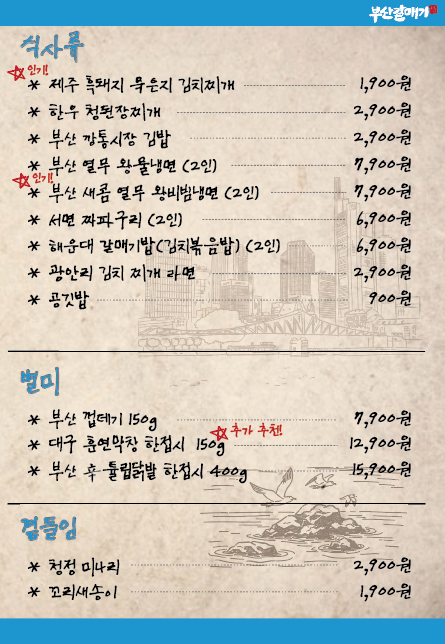 부산갈매기
식사류
인기!
* 제주 흑돼지 묵은지 김치찌개 1,900원
* 한우 청된장찌개 2,900원
* 부산 깡통시장 김밥 2,900원
* 부산 열무 왕물냉면 (2인) 7,900원
인기!
* 부산 새콤 열무 왕비빔냉면 (2인) 7,900원
* 서면 짜파구리 (2인) 6,900원
* 해운대 갈매기밥(김치볶음밥) (2인) 6,900원
* 광안리 김치 찌개 라면 2,900원
* 공깃밥 900원
별미
* 부산 껍데기 150g 7,900원
추가 추천!
* 대구 훈연막창 한접시 150g 12,900원
* 부산 후-튤립닭발 한접시 400g 15,900원
곁들임
* 청정 미나리 2,900원
* 꼬리새송이 1,900원